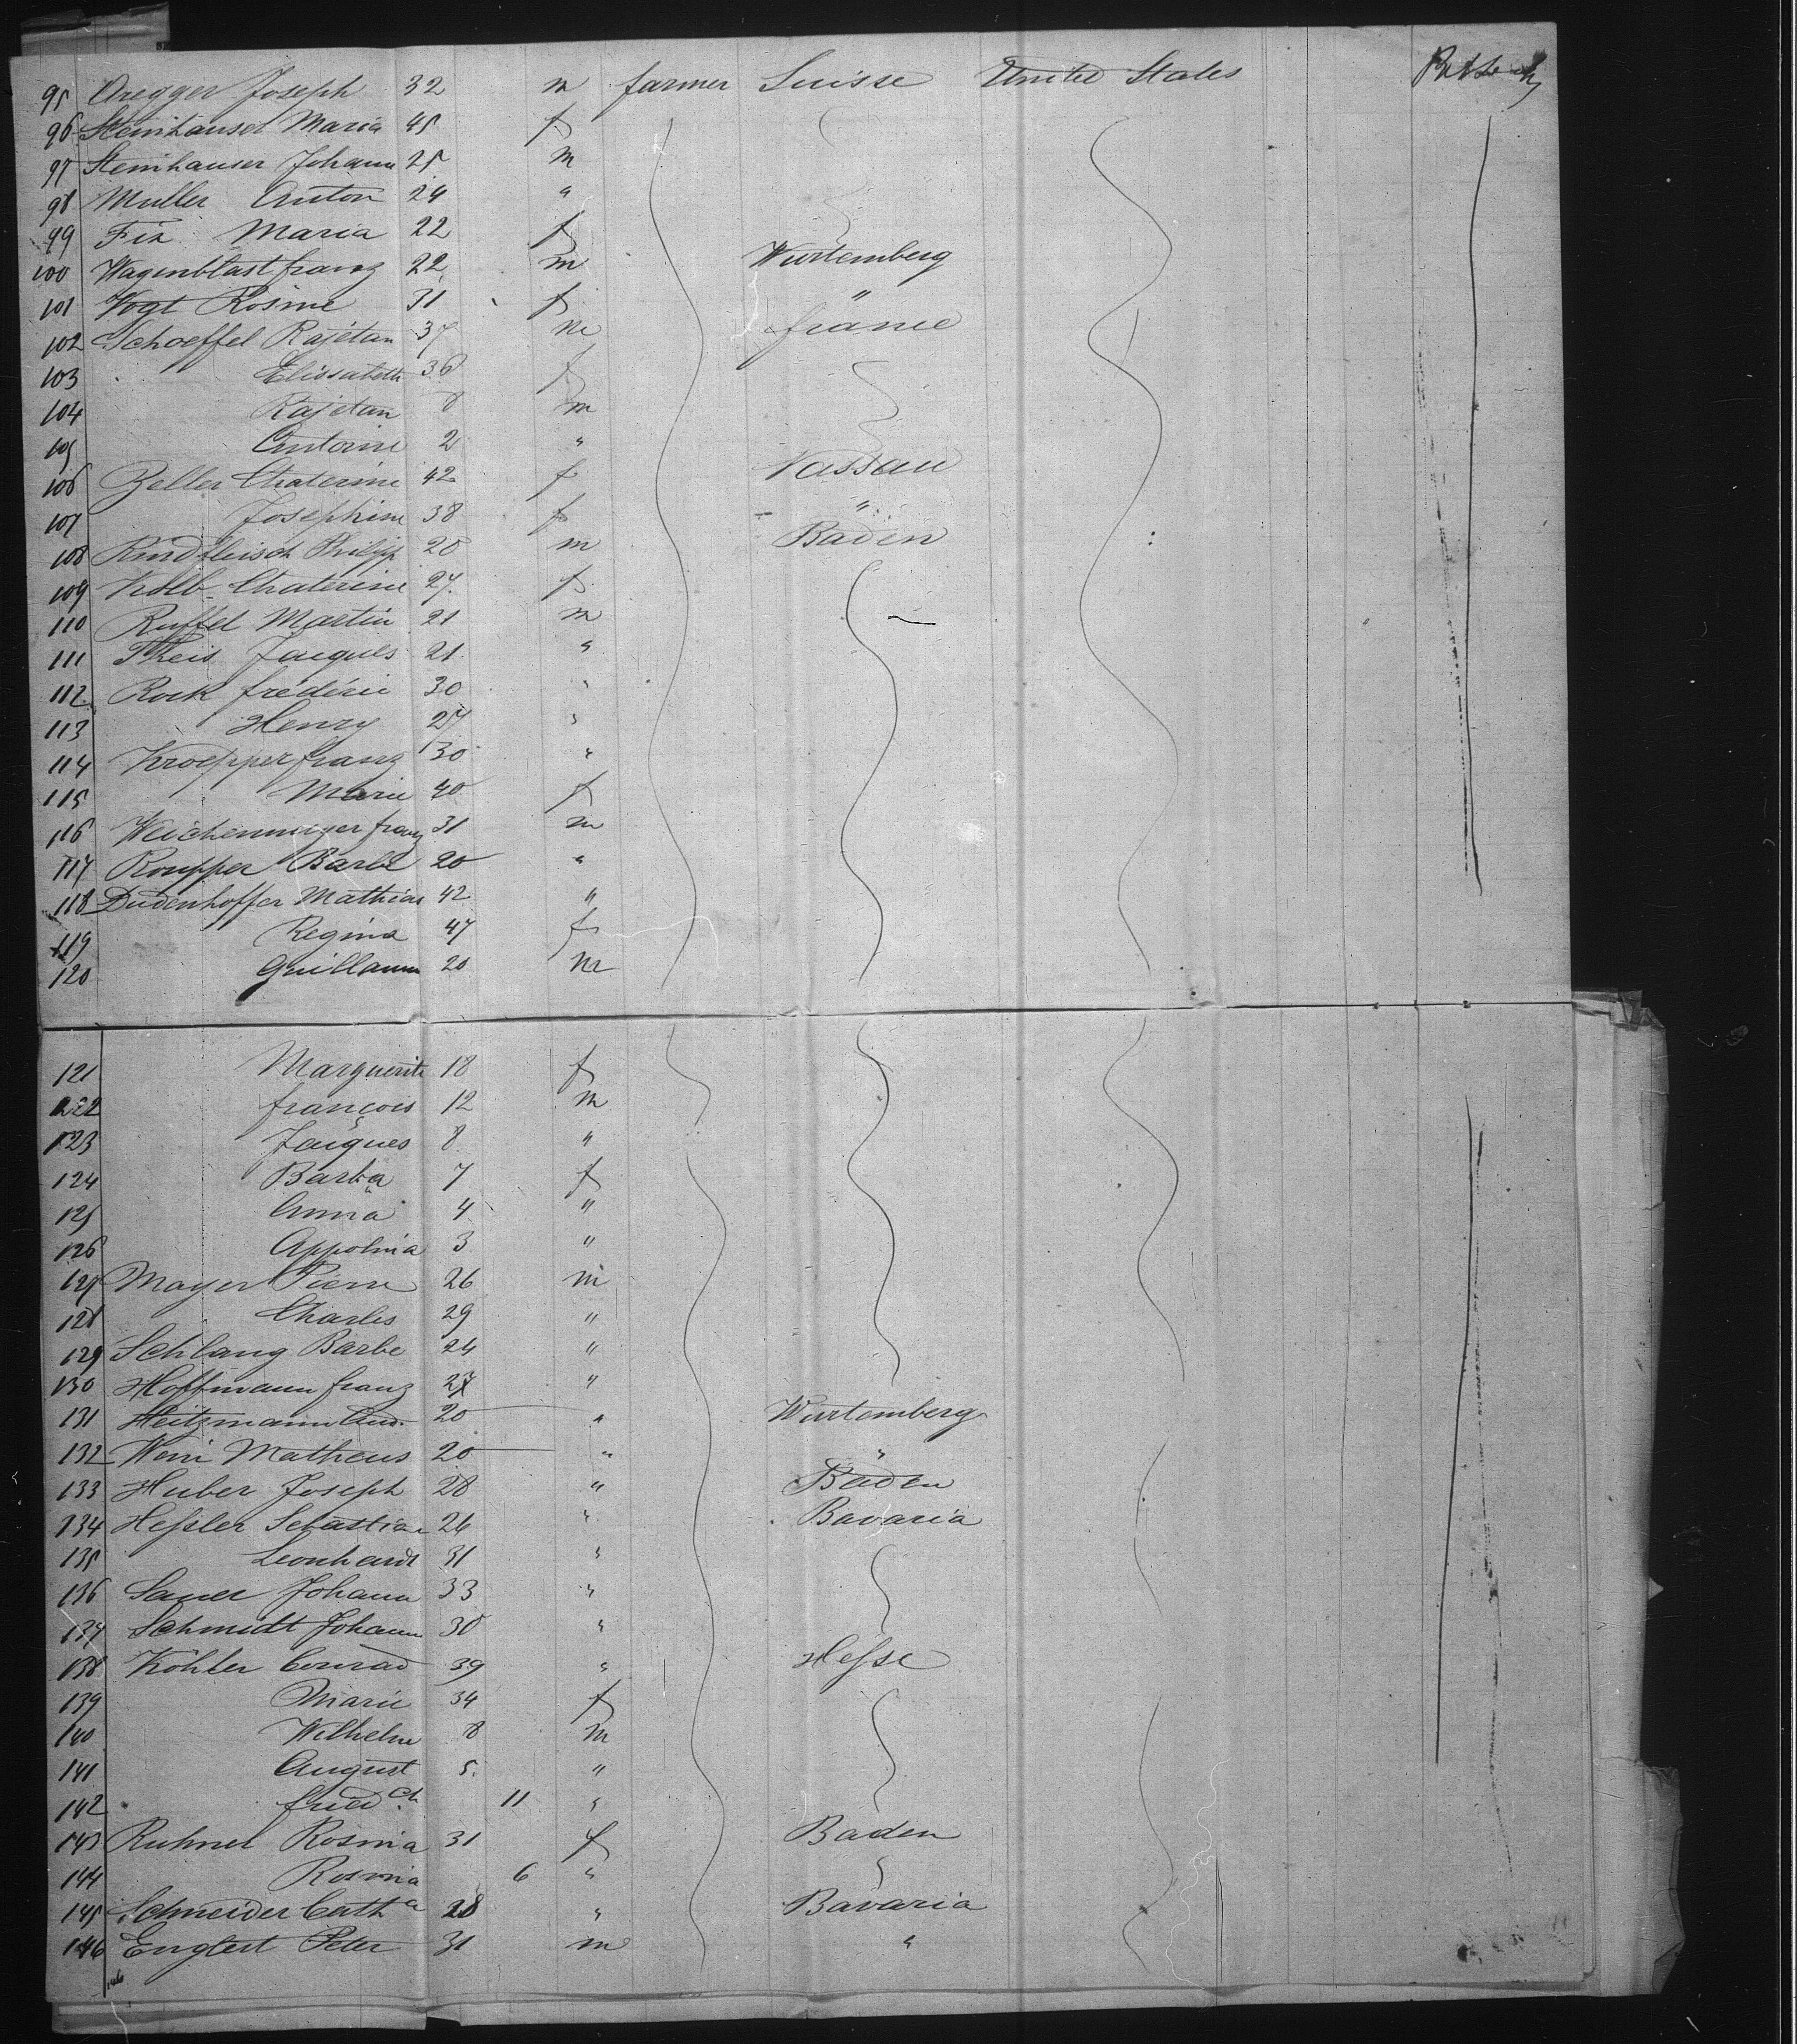 95 Aregger Joseph 32 m farmer Suisse United States
96 Steinhauser Maria 45 f
97 Steinhauser Johann 25 m
98 Muller Anton 24 "
99 Fix Maria 22 f
100 Wagenblast franz 22 m Wurtemberg
101 Vogt Rosine 31 f "
102 Schoeffel Kajetan 37 m france
103 Elissabeth 36 f
104 Kajetan 8 m
105 Antoine 2 "
106 Zeller Chaterine 42 f Nassau
107 Josephine 38 f "
108 Rindfleisch Philipp 28 m Baden
109 Kolb Chaterine 27 f
110 Ruffel Martin 21 m
111 Theis Jacques 21 "
112 Rock frédéric 30 "
113 Henry 27 "
114 Kroepper franz 30 "
115 Marie 40 f
116 franz 31 m
117 Barbe 20 "
118 Dudenhoffer Mathias 42 "
119 Regina 47 f
120 Guillaume 20 m
121 Marguerite 18 f
122 françois 12 m
123 Jacques 8 "
124 Barba 7 f
125 Anna 4 "
126 Appolnia 3 "
127 Mayer Pierre 26 m
128 Charles 29 "
129 Schlang Barbe 24 "
130 Hoffmann franz 27 "
131 Heitzmann And. 20 " Wurtemberg
132 Matheus 20 " "
133 Huber Joseph 28 " Baden
134 Hessler Sebastian 26 " Bavaria
135 Leonhardt 31 "
136 Sauer Johann 33 "
137 Schmidt Johann 30 "
138 Köhler Conrad 39 " Hesse
139 Marie 34 f
140 Wilhelm 8 m
141 August 5 "
142 fried.ch 11 "
143 Kuhnel Rosina 31 f Baden
144 Rosina 6 "
145 Schneider Cath a 28 " Bavaria
146 Englert Peter 31 m "
146